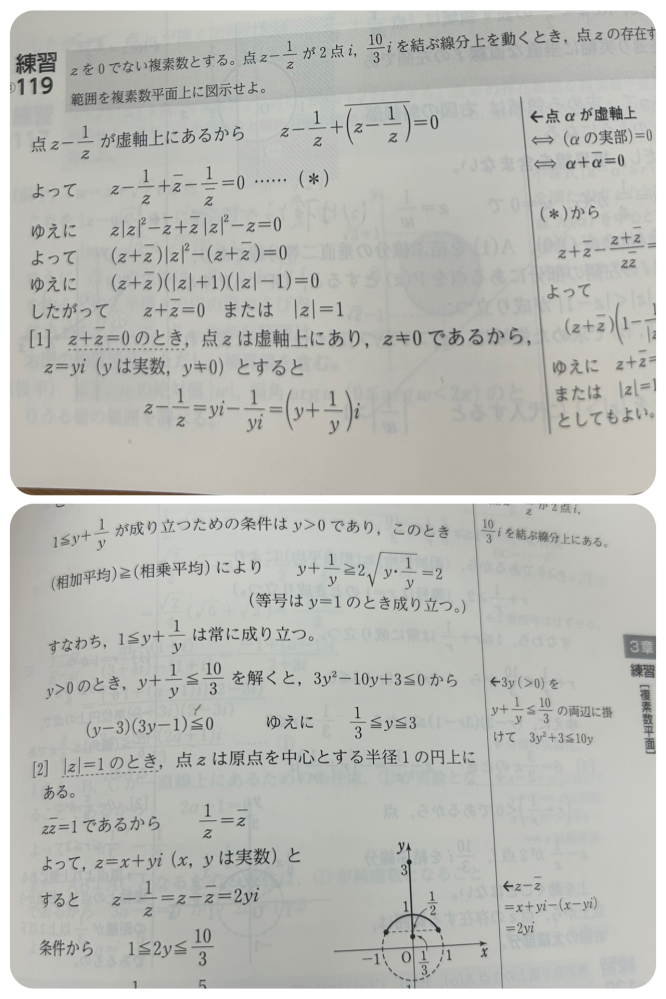 練習
119
zを0でない複素数とする。点z−1/zが2点i, 10/3 iを結ぶ線分上を動くとき，点zの存在す
範囲を複素数平面上に図示せよ。
点z−1/zが虚軸上にあるから　z−1/z+\overline{(z−1/z)}=0
よって　z−1/z+z̄−1/z̄=0 ……(＊)
ゆえに　z|z|²−z+z̄|z|²−z̄=0
よって　(z+z̄)|z|²−(z+z̄)=0
ゆえに　(z+z̄)(|z|+1)(|z|−1)=0
したがって　z+z̄=0　または　|z|=1
[1]　z+z̄=0のとき，点zは虚軸上にあり，z≠0であるから，
z=yi (yは実数，y≠0) とすると
z−1/z=yi−1/yi=(y+1/y)i
←点αが虚軸上
⟺ (αの実部)=0
⟺ α+ᾱ=0
(＊)から
z+z̄−(z+z̄)/(zz̄)=
よって
(z+z̄)(1−1/|z
ゆえに　z+z̄=
または　|z|=1
としてもよい。
1≦y+1/yが成り立つための条件はy>0であり，このとき
(相加平均)≧(相乗平均)により　y+1/y≧2√(y・1/y)=2
(等号はy=1のとき成り立つ。)
すなわち，1≦y+1/yは常に成り立つ。
y>0のとき，y+1/y≦10/3を解くと，3y²−10y+3≦0から
(y−3)(3y−1)≦0　ゆえに　1/3≦y≦3
[2]　|z|=1のとき，点zは原点を中心とする半径1の円上に
ある。
zz̄=1であるから　1/z=z̄
よって，z=x+yi (x, yは実数) と
すると　z−1/z=z−z̄=2yi
条件から　1≦2y≦10/3
が2点i,
10/3 iを結ぶ線分上にある。
3章
練習
[複素数平面]
←3y(>0)を
y+1/y≦10/3の両辺に掛
けて　3y²+3≦10y
←z−z̄
=x+yi−(x−yi)
=2yi
y
3
1
1/2
−1
O
1/3
1
x